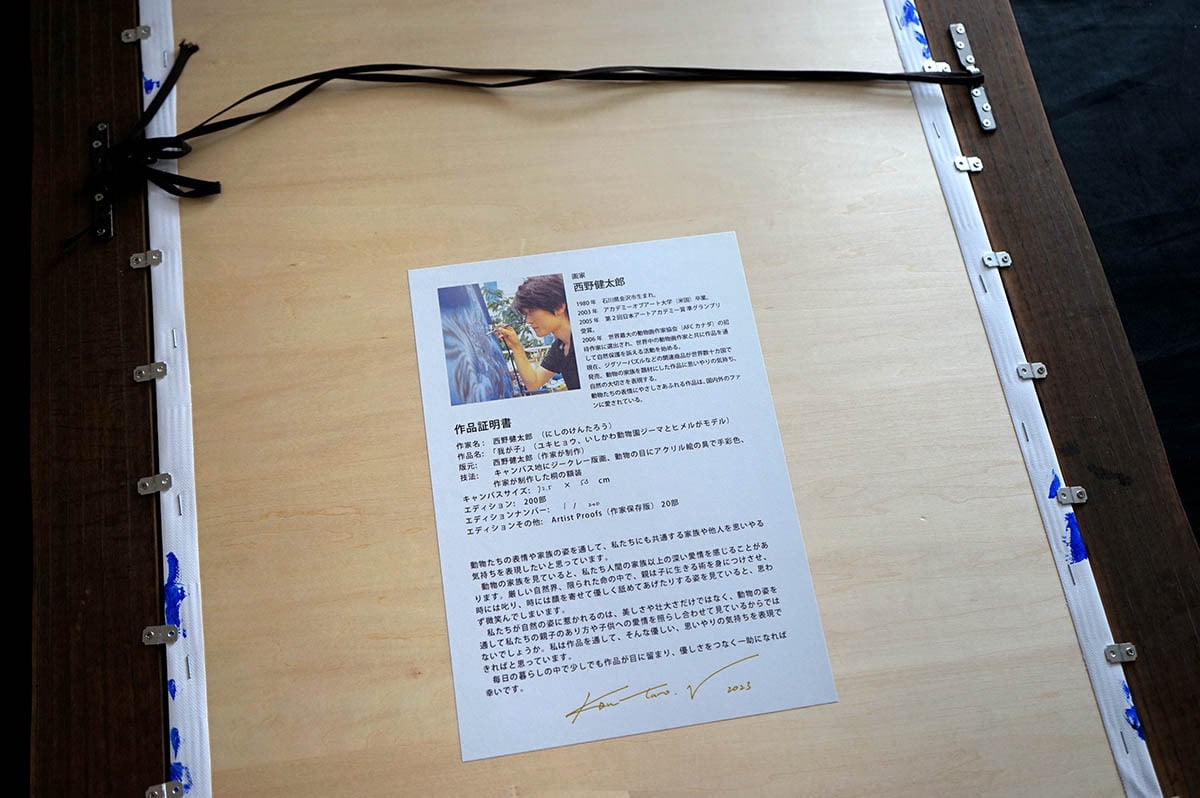 画家
西野健太郎
1980年　石川県金沢市生まれ。
2003年　アカデミーオブアート大学（米国）卒業。
2005年　第2回日本アートアカデミー賞 準グランプリ
受賞。
2006年　世界最大の動物画作家協会（AFC カナダ）の招
待作家に選出され、世界中の動物画作家と共に作品を通
して自然保護を訴える活動を始める。
現在、ジグソーパズルなどの関連商品が世界数十カ国で
発売。動物の家族を題材にした作品に思いやりの気持ち、
自然の大切さを表現する。
動物たちの表情にやさしさあふれる作品は、国内外のファ
ンに愛されている。
作品証明書
作家名：　西野健太郎　（にしのけんたろう）
作品名：　「我が子」（ユキヒョウ、いしかわ動物園ジーマとヒメルがモデル）
版元：　西野健太郎（作家が制作）
技法：　キャンバス地にジークレー版画、動物の目にアクリル絵の具で手彩色、
作家が制作した桐の額装
キャンバスサイズ：　72.5　×　50　cm
エディション：　200部
エディションナンバー：　1 / 200
エディションその他：　Artist Proofs（作家保存版）20部
動物たちの表情や家族の姿を通して、私たちにも共通する家族や他人を思いやる
気持ちを表現したいと思っています。
　動物の家族を見ていると、私たち人間の家族以上の深い愛情を感じることがあ
ります。厳しい自然界、限られた命の中で、親は子に生きる術を身につけさせ、
時には叱り、時には顔を寄せて優しく舐めてあげたりする姿を見ていると、思わ
ず微笑んでしまいます。
　私たちが自然の姿に惹かれるのは、美しさや壮大さだけではなく、動物の姿を
通して私たちの親子のあり方や子供への愛情を照らし合わせて見ているからでは
ないでしょうか。私は作品を通して、そんな優しい、思いやりの気持ちを表現で
きればと思っています。
　毎日の暮らしの中で少しでも作品が目に留まり、優しさをつなぐ一助になれば
幸いです。
2023